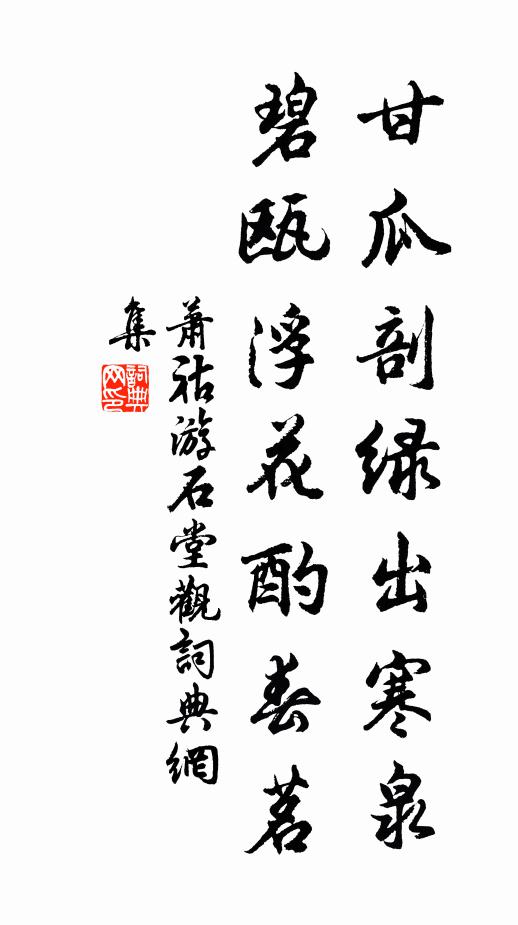 甘瓜剖绿出寒泉
碧瓯浮花酌春茗
萧祜游石堂觀詞典網
集
詞典
网印